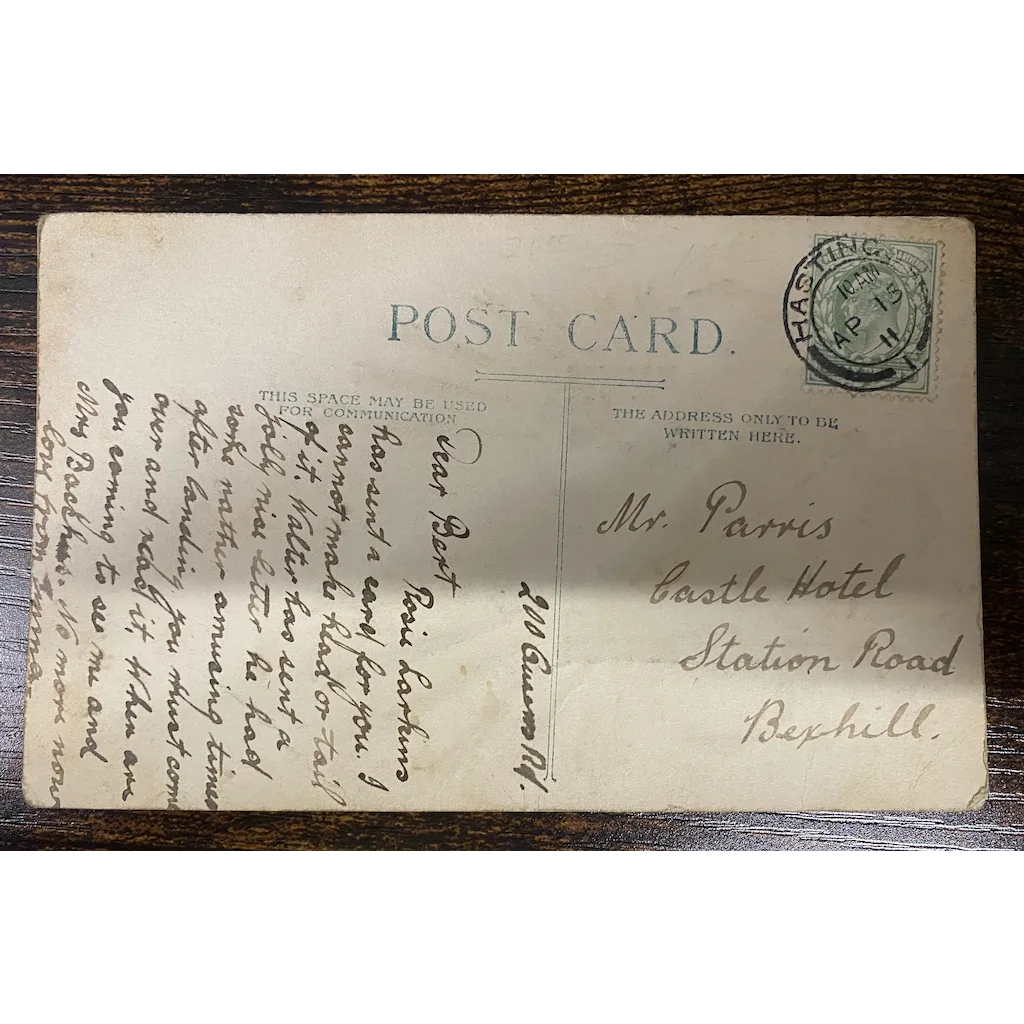 POST CARD.
THIS SPACE MAY BE USED
FOR COMMUNICATION
THE ADDRESS ONLY TO BE
WRITTEN HERE.
HASTINGS
10.AM
AP 1
11
Mr. Parris
Castle Hotel
Station Road
Bexhill.
Queens Rd.
Dear Bert
Rosie Larkins
has sent a card for you. I
cannot make head or tail
of it. Walter has sent a
jolly nice letter he had
some rather amusing times
after landing, you must come
over and read it. When are
you coming to see me and
Mrs. No more now
love from